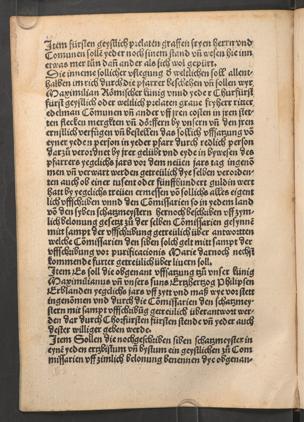 Item fürsten geystlich prelaten graffen freyen herrn vnd
Comunen solle yeder noch sinem stand vñ wesen hie inn
etwas mer tůn dañ ander als sich wol gepürt.
Die inneme sollicher vfflegung d weltlichen soll allent-
halben im rich durch die pfarrer beschehen vñ sollen wyr
Maximilian Römischer künig vnd yede Churfürst
fürst geystlich oder weltlich prelaten graue fryherr ritter
edelman Comunen vñ ander vff iren costen in iren stet-
ten flecken merckten vñ dörffern by vnsern vñ den iren
ernstlich verfügen vñ bestellen das sollich vffsatzung võ
eyner yeden person in yeder pfar durch redlich person
dar zů verordnet by irer gelübt vnd eyde in bywesen des
pfarrers yegelichs jars vor dem neüen jars tag ingenõ
men vñ verwart werden getreülich die selben verorden-
ten auch ob einer tusent oder fünffhundert guldin wert
hatt by yegelichs treüen ermessen võ sollichs alles eigent
lich vffschriben vnnd den Comissarien so in yedem land
võ den syben schatzmeystern hernoch beschriben vff zym-
lich belonung gesetzt zů der selben Comissarien gesynnẽ
mit sampt der vffschribung getreülich über antwortten
welche Comissarien den siben solch gelt mitt sampt der
vffschribung vor purificacionis Marie darnoch nechst
kommende fürter getreülich über liuern soll.
Item Es soll die obgenant vffsatzung tzů vnser künig
Maximilianus vñ vnsers suns Ertzhertzog Philipsen
Erblanden yegelichs jars vff zytt vnd maß wye vor stett
ingenõmen vnd durch die Comissarien den schatzmey-
stern mit sampt vffschribũg getreülich über antwort wer
den dar durch Churfürsten fürsten stende vñ yeder auch
dester williger geben werde.
Item Sollen die nochgeschriben siben schatzmeyster in
eynẽ yeden ertzbistum vñ bystum ein geystlichen zů Com
missarien vff zimlich belonung benennen dye obgenan-